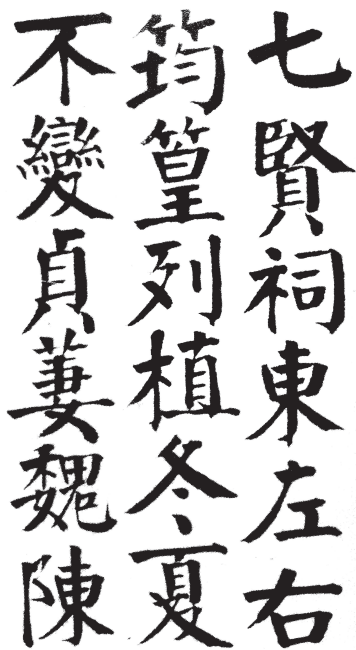 七賢祠東左右
筠篁列植冬夏
不變貞萋魏陳